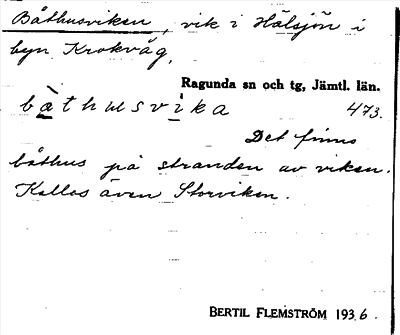 Båthusviken, vik i Hälsjön i
byn Krokvåg,
Ragunda sn och tg, Jämtl. län.
bæthusvika 473.
Det finns
båthus på stranden av viken.
Kallas även Storviken.
BERTIL FLEMSTRÖM 1936.